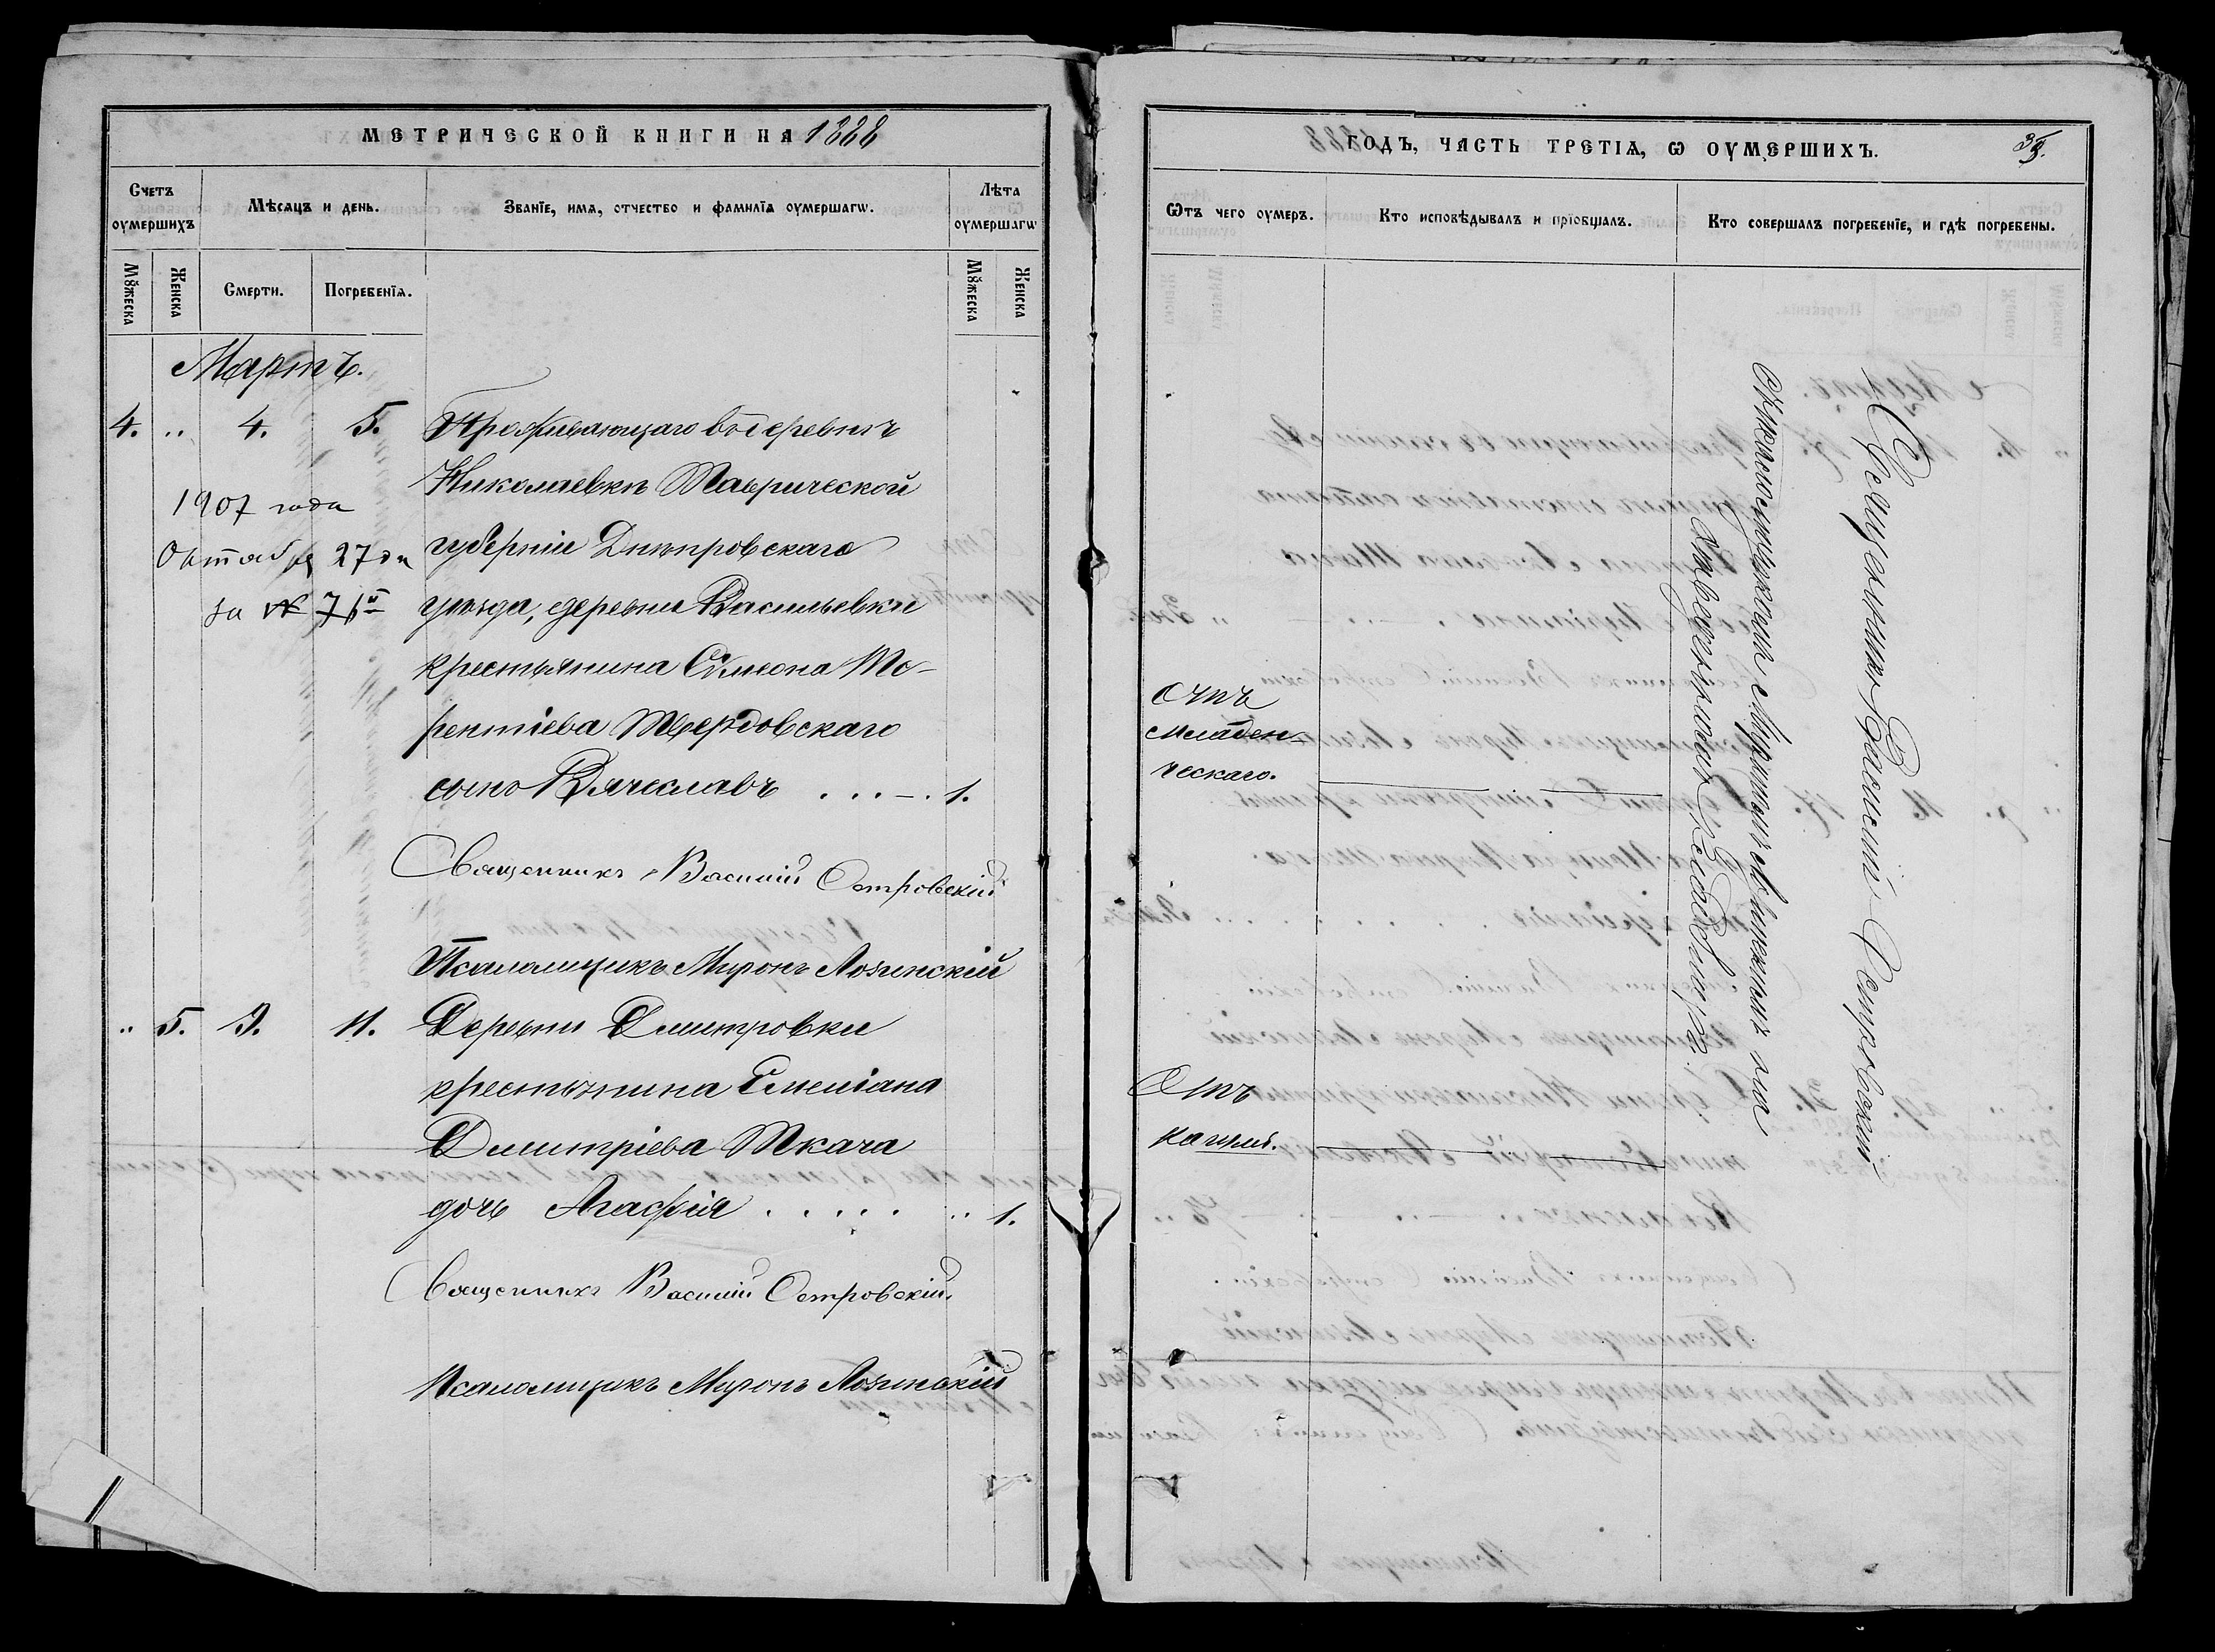 МЕТРИЧЕСКОЙ КНИГИ НА 1888
Счетъ оумершихъ
Мѣсяцъ и день.
Званіе, имя, отчество и фамилїа оумершагѡ.
Лѣта оумершагѡ
Мꙋжеска
Женска
Смерти.
Погребенїѧ.
Мꙋжеска
Женска
Мартъ.
4. „ 4. 5. Проживающаго въ деревнѣ
Николаевкѣ Таврической
губерніи Днѣпровскаго
уѣзда, деревни Васильевки
крестьянина Симеона
Твердовскаго
сынъ Вячеславъ . . . – . 1.
1907 года
Октября 27 дн
за №
Священникъ Василій Островскій
Псаломщикъ Миронъ Лозинскій
„ 5. 9. 11. Деревни Дмитровки
крестьянина Емеліана
Димитріева Ткача
дочь Агафія . . . . . „ 1.
Священникъ Василій Островскій.
Псаломщикъ Миронъ Лозинскій
ГОДЪ, ЧАСТЬ ТРЕТІѦ, Ѡ ОУМЕРШИХЪ.
Ѿтъ чего оумеръ.
Кто исповѣдывалъ и прїобщалъ.
Кто совершалъ погребенїе, и гдѣ погребены.
Отъ
младен-
ческаго.
Отъ
кашля.
Священникъ Василій Островскій
съ псаломщикомъ Мирономъ Лозинскимъ на
кладбищѣ